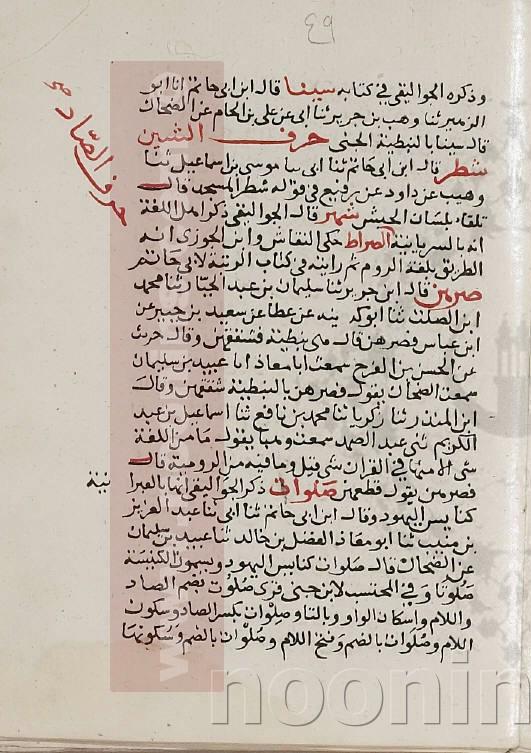 ٤٩
وذكره الجواليقى فى كتابه سينا قال ابن ابى حاتم انا ابو
الزهير ثنا وهب بن جرير ثنا ابى عن على بن الحكم عن الضحاك
قال سينا بالنبطية الحسن حرف الشين
شطر قال ابن ابى حاتم ثنا ابى موسى بن اسماعيل ثنا
وهيب عن داود عن رفيع فى قوله شطر المسجد قال
تلقاء بلسان الحبش شهر قال الجواليقى ذكر اهل اللغة
حرف الصاد
انه بالسريانية الصراط حكى النقاش وابن الجوزى انه
الطريق بلغة الروم ثم رايته فى كتاب الزينة لابى حاتم
صرهن قال ابن جرير ثنا سليمان بن عبد الجبار ثنا محمد
ابن الصلت ثنا ابو كدينه عن عطا عن سعيد بن جبير عن
ابن عباس فصرهن قال هى بنطية فشققهن وقال
عن الحسن بن الفرج سمعت ابا معاذ انا عبيد بن سليمان
سمعت الضحاك يقول فصرهن بالنبطية شققهن وقال
ابن المنذر ثنا زكريا ثنا محمد بن نافع ثنا اسماعيل بن عبد
الكريم ثنى عبد الصمد سمعت وهبا يقول ما من اللغة
شى الا منها فى القران شى قيل وما فيه من الرومية قال
فصرهن يقول قطعهن صلوات ذكر الجواليقى انها بالعبرا
نية
كنايس اليهود وقال ابن ابى حاتم ثنا ابى ثنا عبد العزيز
بن منيب ثنا ابو معاذ الفضل بن خالد ثنا عبيد بن سليمان
عن الضحاك قال صلوات كنايس اليهود ويسمون الكنيسة
صلوتا وفى المحتسب لابن جنى قرى صلوت بضم الصاد
واللام واسكان الواو وبالتا وصلوات بكسر الصاد وسكون
اللام وصلوات بالضم وفتح اللام وصلوات بالضم وسكونها
noonin